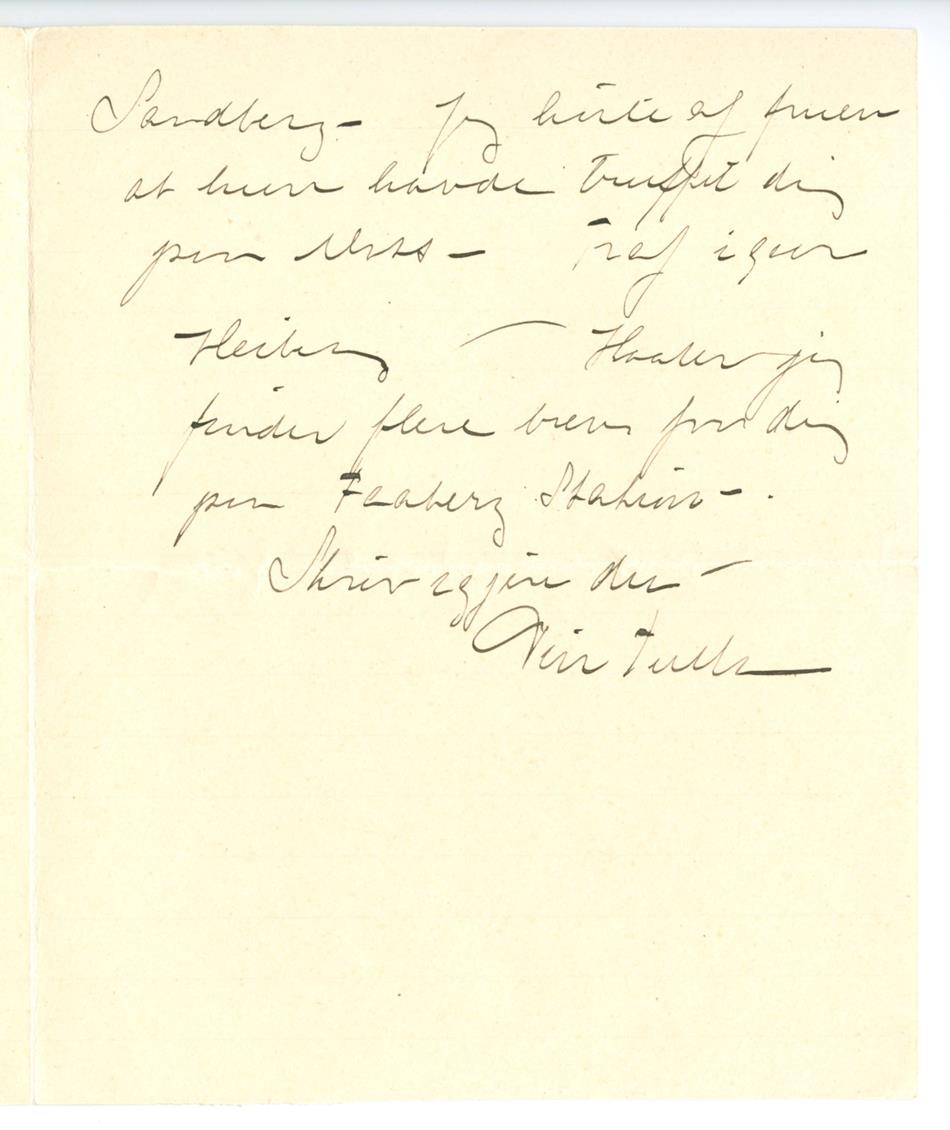 Sandberg – Jeg hørte af fruen
at hun havde truffet dig
paa Moss – Traf igaar
Heiberg — Haaber jeg
finder flere breve fra dig
paa Faaberg Station – .
Skriv igjen du –
Din Tulla